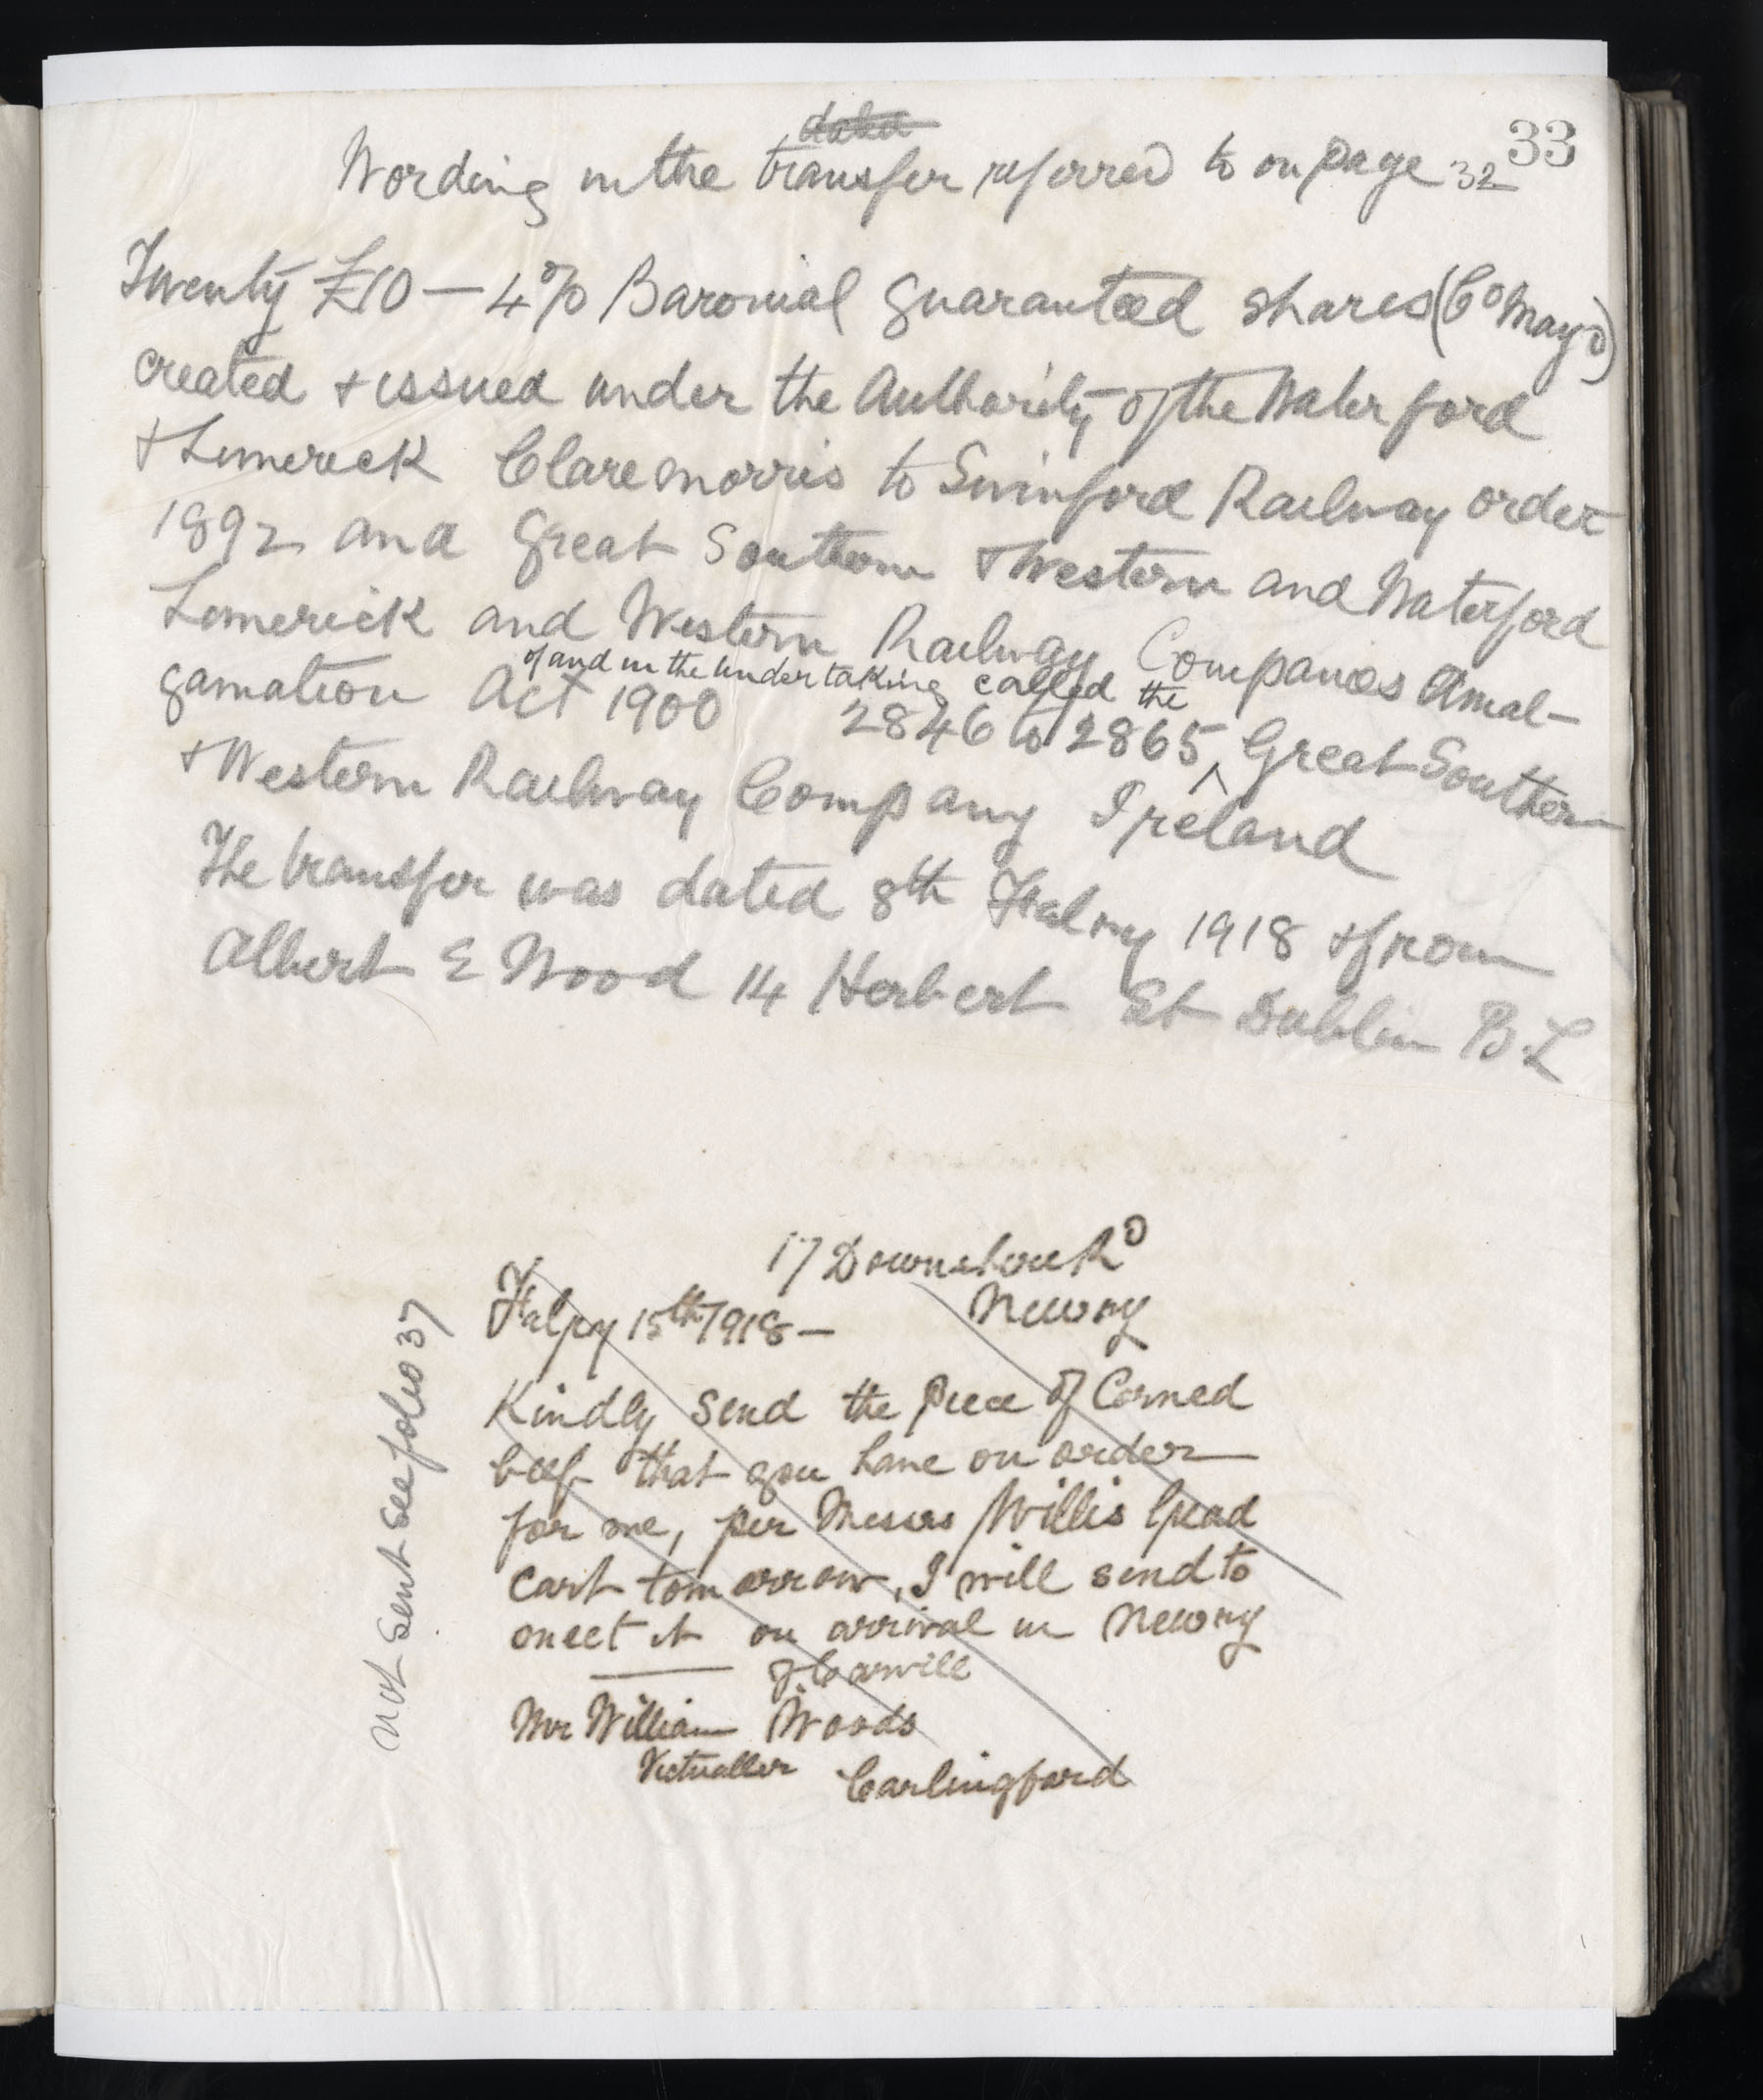 33
dated
Wording in the transfer referred to on page 32
Twenty £10 — 4% Baronial guaranteed shares (Co Mayo)
created + issued under the Authority of the Waterford
+ Limerick Claremorris to Swinford Railway order
1892 and Great Southern + Western and Waterford
Limerick and Western Railway Companies Amal-
of and in the undertaking called the
gamation Act 1900 2846 to 2865 ^ Great Southern
+ Western Railway Company Ireland
The transfer was dated 8th Febry 1918 + from
Albert E Wood 14 Herbert St Dublin B.L
17 Downshire Rd
Newry
Febry 15th/1918 —
Kindly send the piece of Corned
beef that you have on order
for me, per Messrs Willis
cart tomorrow, I will send to
meet it on arrival in Newry
Mr William Woods
Victualler Carlingford
not sent see folio 37